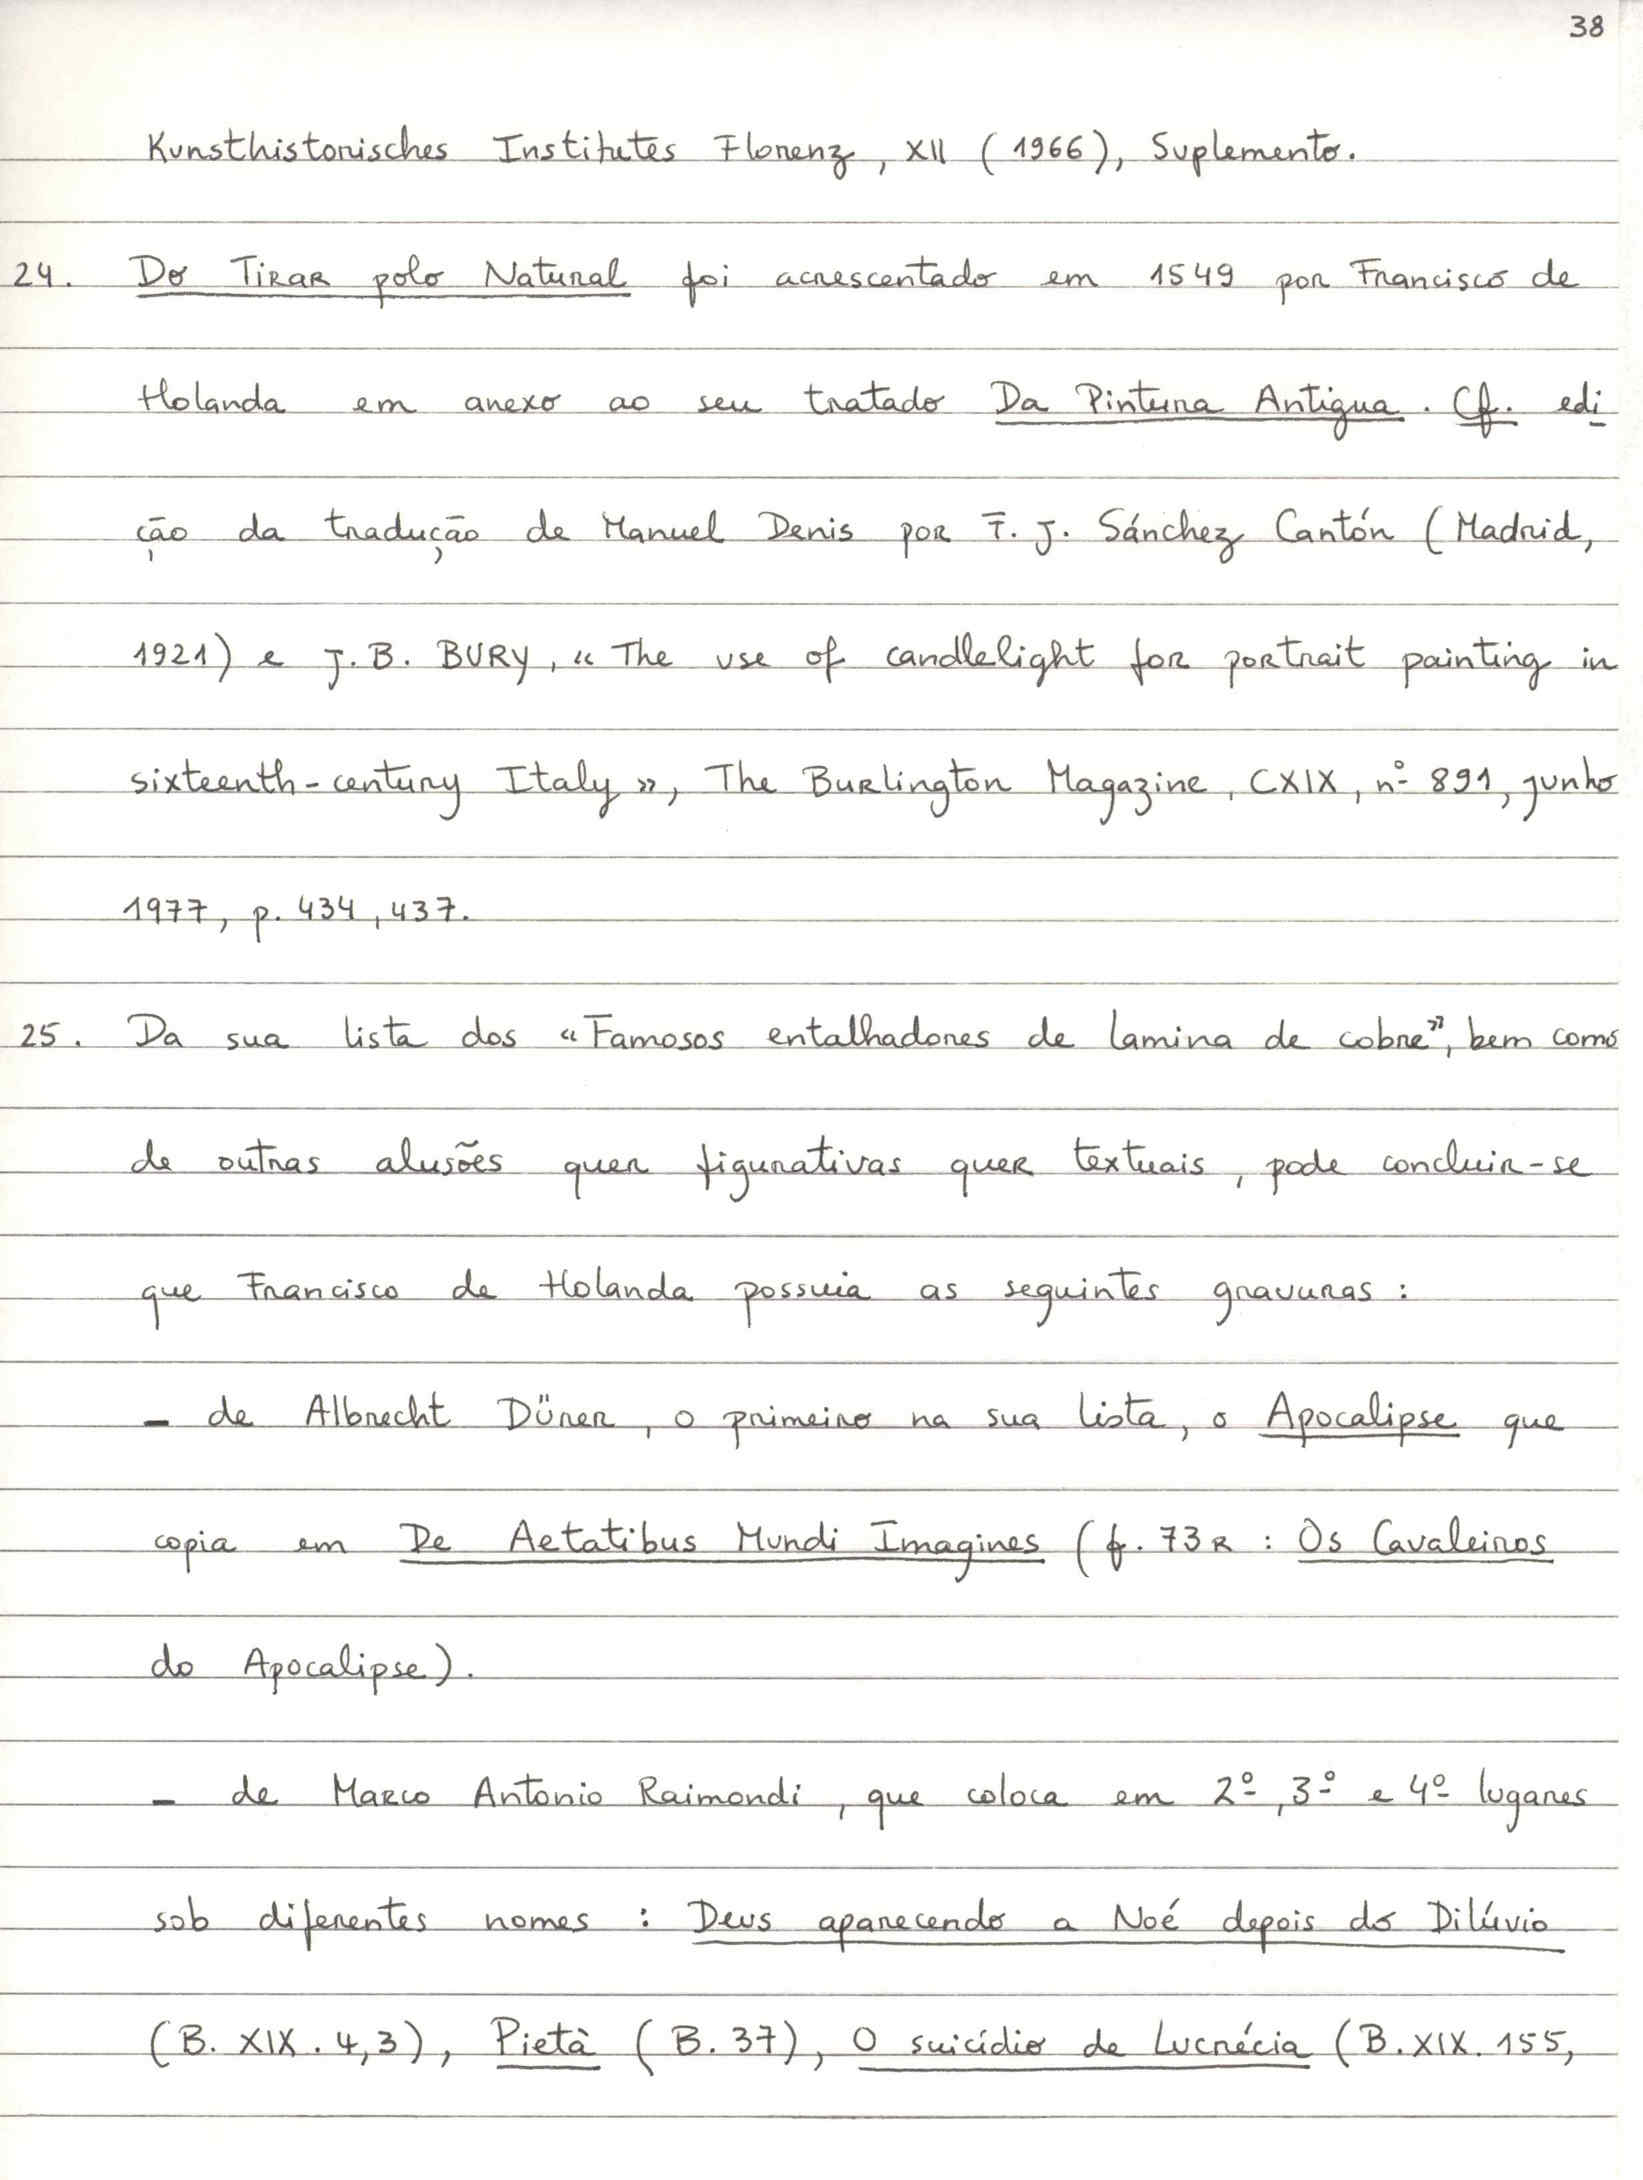 38
Kunsthistorisches Institutes Florenz, XII (1966), Suplemento.
24. Do Tirar polo Natural foi acrescentado em 1549 por Francisco de
Holanda em anexo ao seu tratado Da Pintura Antigua. Cf. edi
ção da tradução de Manuel Denis por F. J. Sánchez Cantón (Madrid,
1921) e J. B. BURY, « The use of candlelight for portrait painting in
sixteenth-century Italy », The Burlington Magazine, CXIX, nº 891, junho
1977, p. 434, 437.
25. Da sua lista dos « Famosos entalhadores de lamina de cobre », bem como
de outras alusões quer figurativas quer textuais, pode concluir-se
que Francisco de Holanda possuia as seguintes gravuras :
- de Albrecht Dürer, o primeiro na sua lista, o Apocalipse que
copia em De Aetatibus Mundi Imagines (f. 73R : Os Cavaleiros
do Apocalipse).
- de Marco Antonio Raimondi, que coloca em 2º, 3º e 4º lugares
sob diferentes nomes : Deus aparecendo a Noé depois do Dilúvio
(B. XIX. 4,3), Pietà (B. 37), O suicídio de Lucrécia (B. XIX. 155,